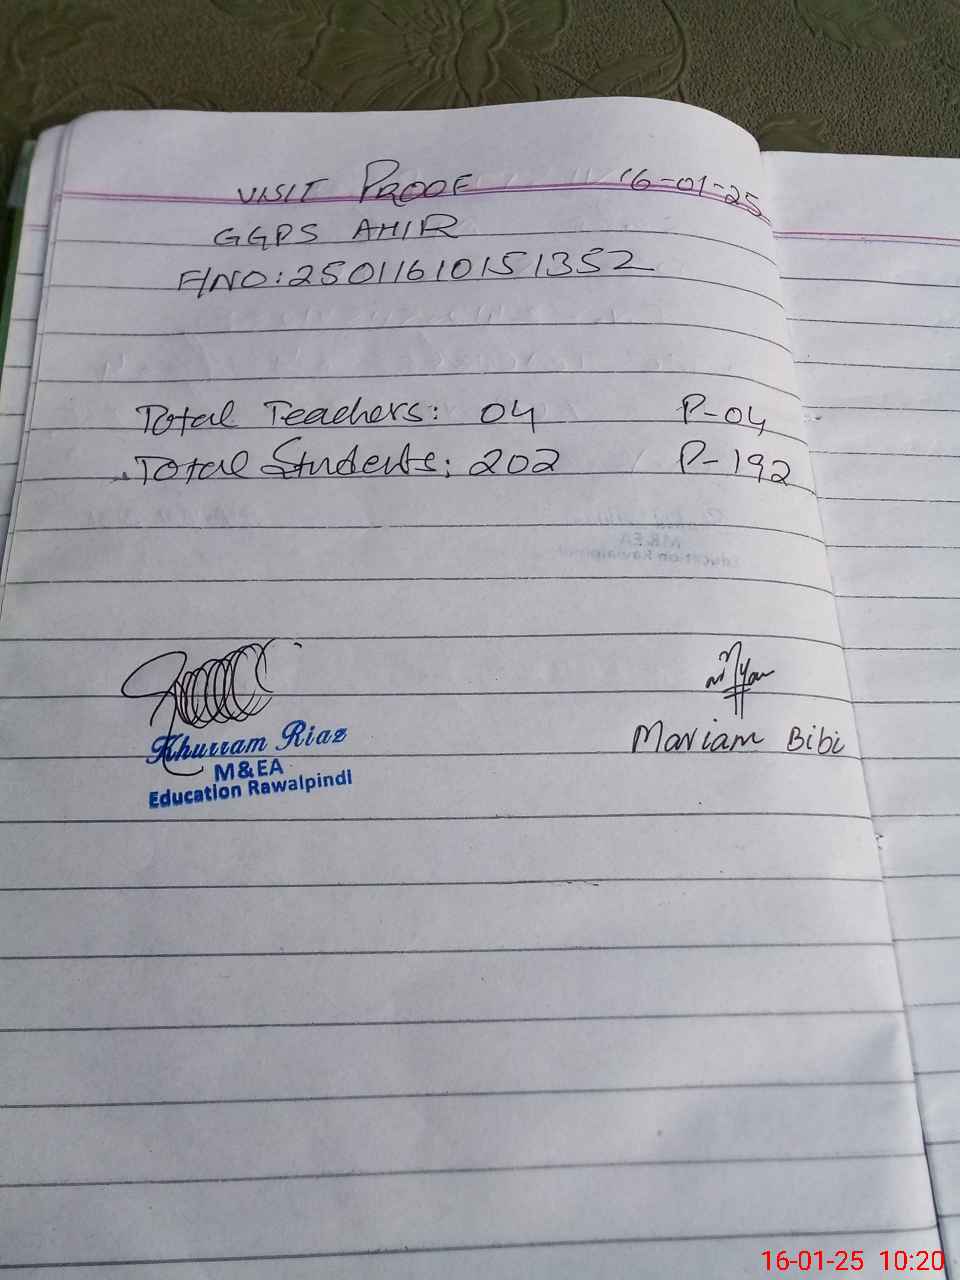 VISIT PROOF 16-01-25
GGPS AHIR
F/NO: 25011610151352
Total Teachers: 04 P-04
Total Students: 202 P-192
Khurram Riaz
M&EA
Education Rawalpindi
Mariam Bibi
16-01-25 10:20